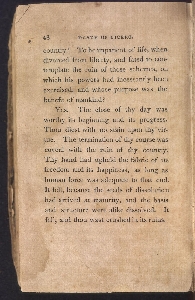 48 DEATH OF CICERO.
country? To be impatient of life, when
divorced from liberty, and fated to con-
template the ruin of those schemes, on
which his powers had incessantly been
exercised, and whose purpose was the
benefit of mankind?
Yes. The close of thy day was
worthy its beginning and its progress.
Thou diedst with no stain upon thy vir-
tue. The termination of thy course was
coeval with the ruin of thy country.
Thy hand had upheld the fabric of its
freedom and its happiness, as long as
human force was adequate to that end.
It fell, because the seeds of dissolution
had arrived at maturity, and the basis
and structure were alike dissolved. It
fell, and thou wast crushed in its ruins.